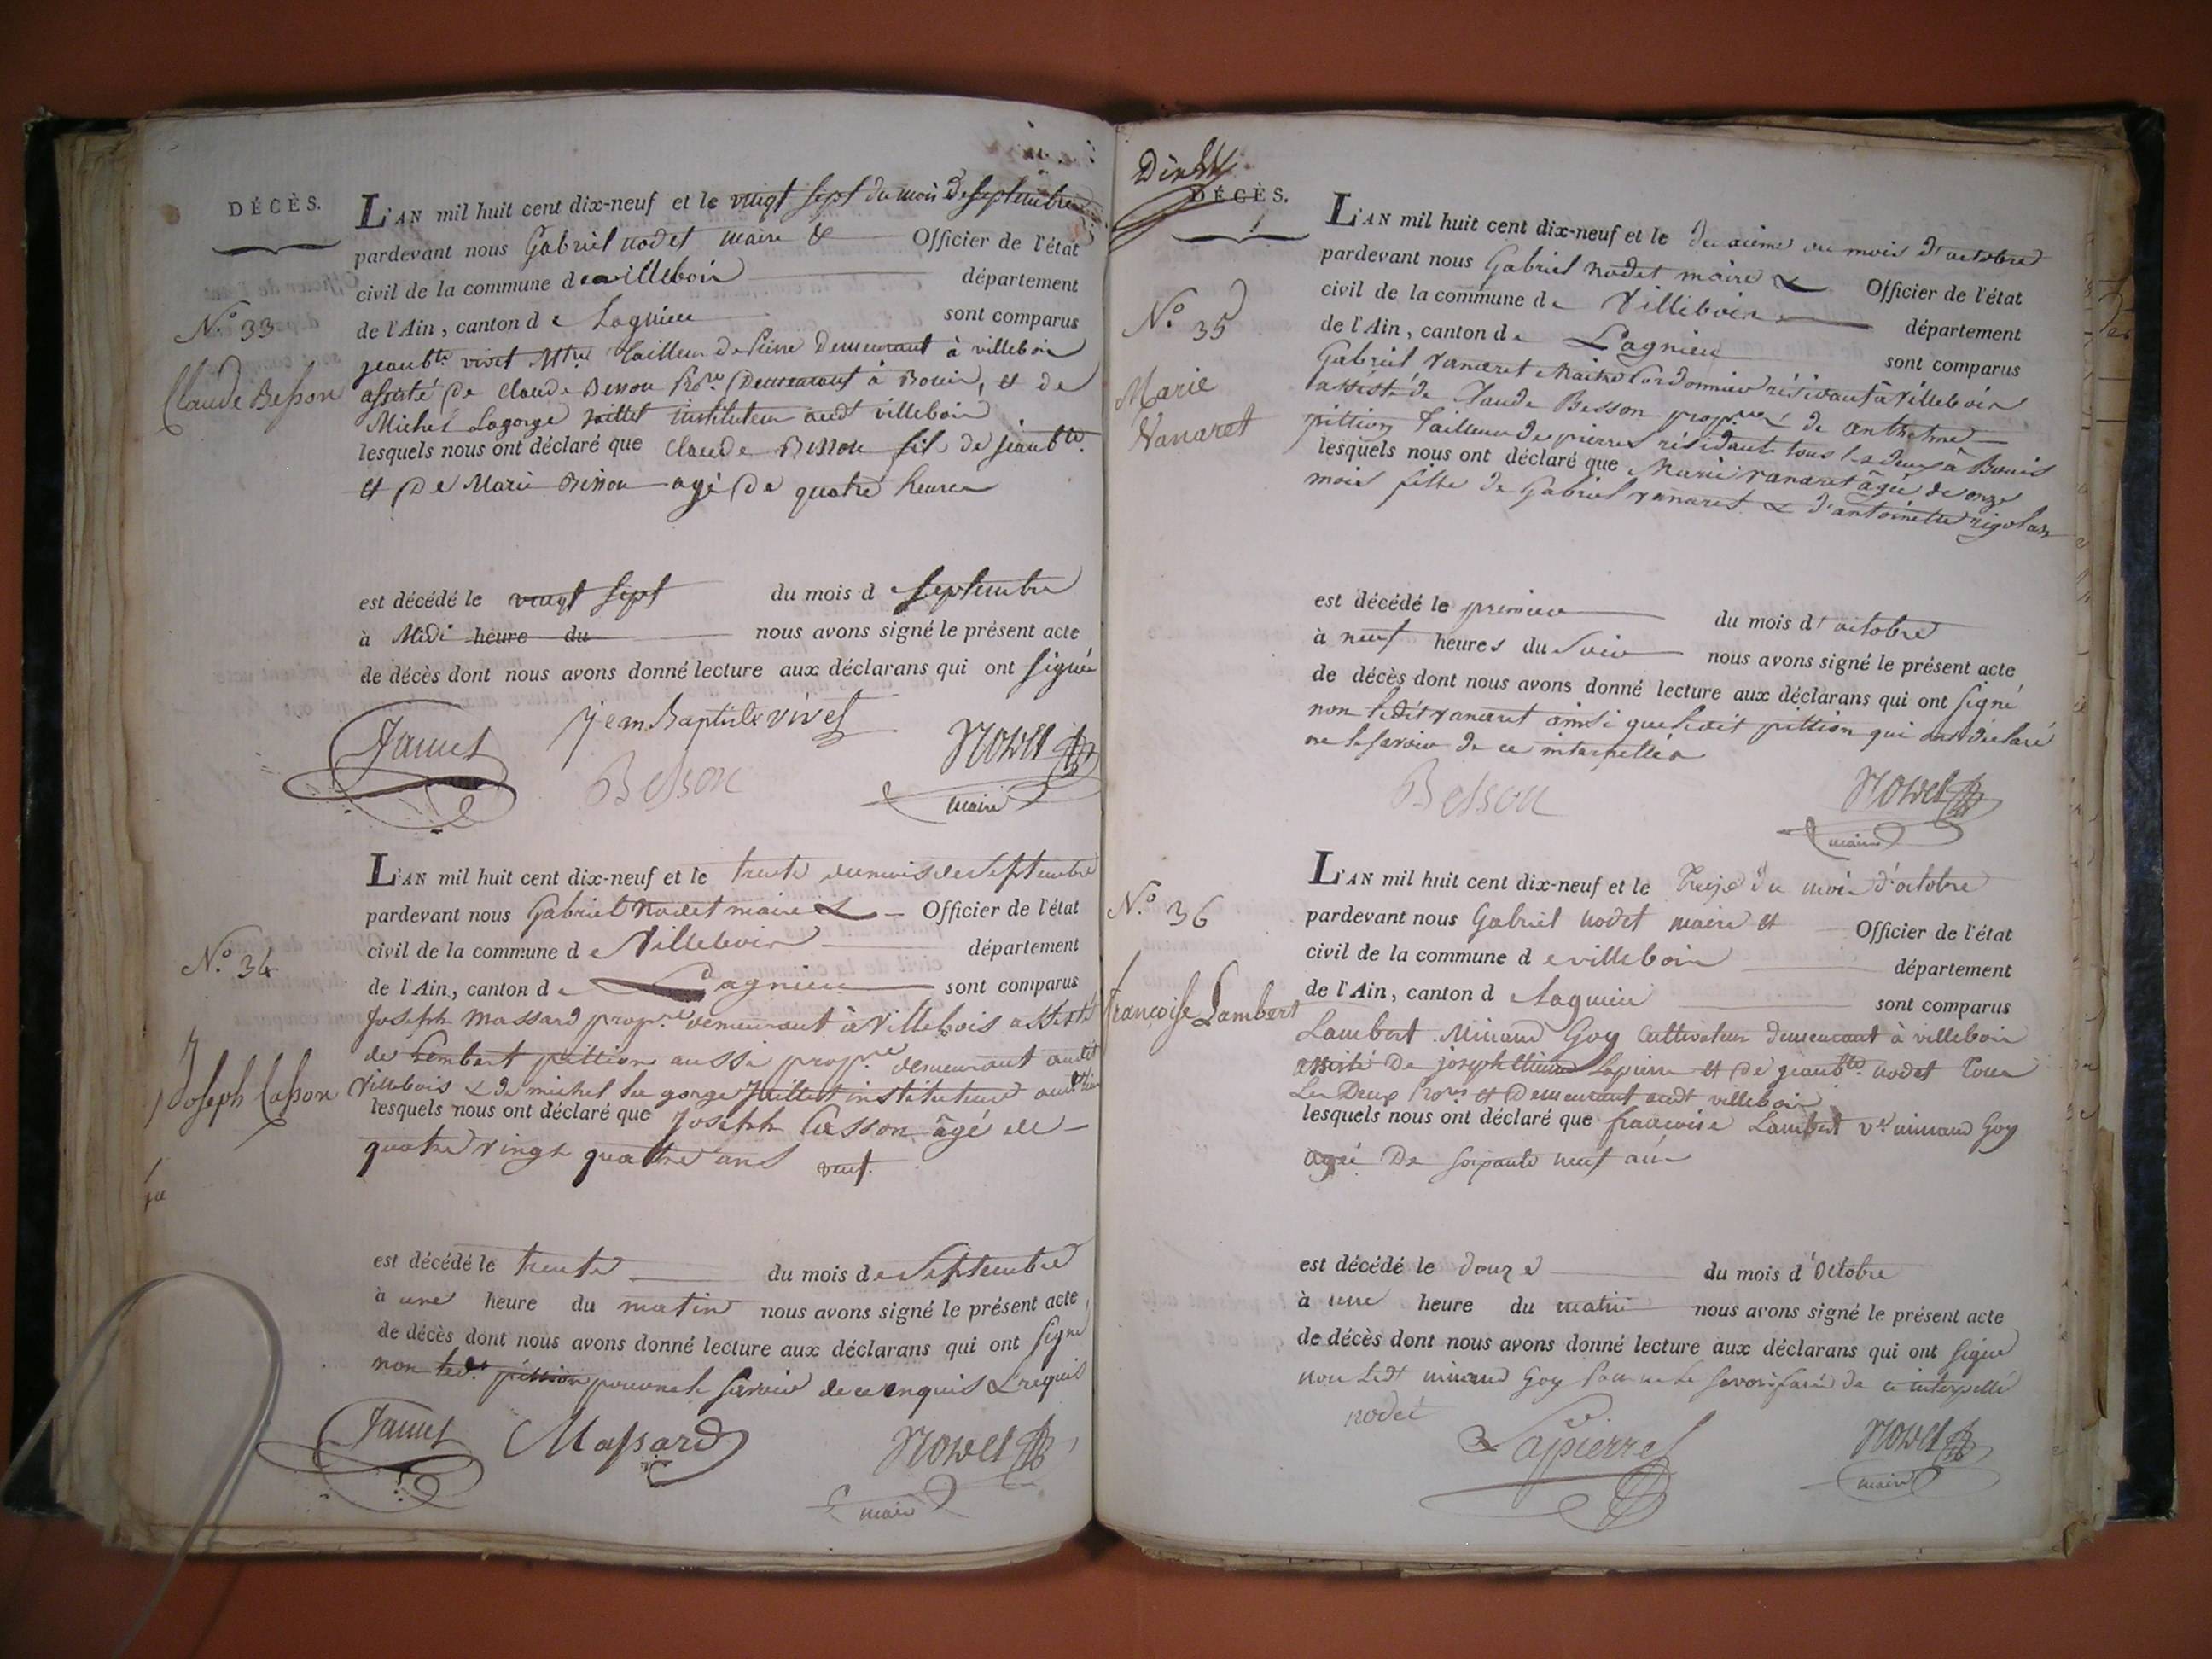 DÉCÈS.
L'AN mil huit cent dix-neuf et le vingt sept du mois de septembre
pardevant nous Gabriel nodet maire & Officier de l'état
civil de la commune de villebois département
de l'Ain, canton de Lagnieu sont comparus
N.o 33
Claude Besson
jeanbte vivet Mtre tailleur de Pierre demeurant à villebois
assisté de Claude Besson pro.re demeurant à Bouis, et de
Michel Lagorge juillet instituteur audt villebois
lesquels nous ont déclaré que Claude Besson fils de jeanbte
et de Marie Besson agé de quatre heures
est décédé le vingt sept du mois d septembre
à Midi heure du nous avons signé le présent acte
de décès dont nous avons donné lecture aux déclarans qui ont signé
jean Baptiste vivet
Besson
Nodet
maire
L'AN mil huit cent dix-neuf et le trente du mois de Septembre
pardevant nous Gabriel Nodet maire & Officier de l'état
civil de la commune de Villebois département
de l'Ain, canton de Lagnieu sont comparus
N.o 34
Joseph Casson
Joseph Massard propre demeurant à Villebois assisté
de Lembert pittion aussi propre demeurant audit
Villebois & de michel la gorge Juillet instituteur audt
lesquels nous ont déclaré que Joseph Casson âgé de
quatre vingt quatre ans veuf.
est décédé le trente du mois de Septembre
à une heure du matin nous avons signé le présent acte
de décès dont nous avons donné lecture aux déclarans qui ont signé
non led.t pittion pour ne le savoir de ce enquis & requis
Massard
Nodet
maire
DÉCÈS.
L'AN mil huit cent dix-neuf et le deuxième du mois d'octobre
pardevant nous Gabriel Nodet maire & Officier de l'état
civil de la commune de Villebois département
de l'Ain, canton de Lagnieu sont comparus
N.o 35
Marie
Vanaret
Gabriel Vanaret Maitre Cordonnier résidant à Villebois
assisté de Claude Besson propre & de anthelme
pittion tailleur de pierres résidants tous les deux à Bouis
lesquels nous ont déclaré que Marie vanaret âgée de onze
mois fille de Gabriel vanaret & d'antoinette
est décédé le premier du mois d'octobre
à neuf heures du soir nous avons signé le présent acte
de décès dont nous avons donné lecture aux déclarans qui ont signé
non ledit vanaret ainsi que ledit pittion qui ont déclaré
ne le savoir de ce interpellés
Besson
Nodet
maire
L'AN mil huit cent dix-neuf et le treize du mois d'octobre
pardevant nous Gabriel nodet maire et Officier de l'état
civil de la commune de villebois département
de l'Ain, canton d Lagnieu sont comparus
N.o 36
francoise Lambert
Lambert Minand Goy Cultivateur demeurant à villebois
assisté de joseph Lapierre et de jeanbte nodet tous
Les Deux pro.res et demeurant audt villebois
lesquels nous ont déclaré que francoise Lambert ve minand Goy
agée De soixante neuf ans
est décédé le douze du mois d'octobre
à une heure du matin nous avons signé le présent acte
de décès dont nous avons donné lecture aux déclarans qui ont signé
non ledt minand Goy pour ne le savoir faire de ce interpellé
nodet
Lapierre
Nodet
maire